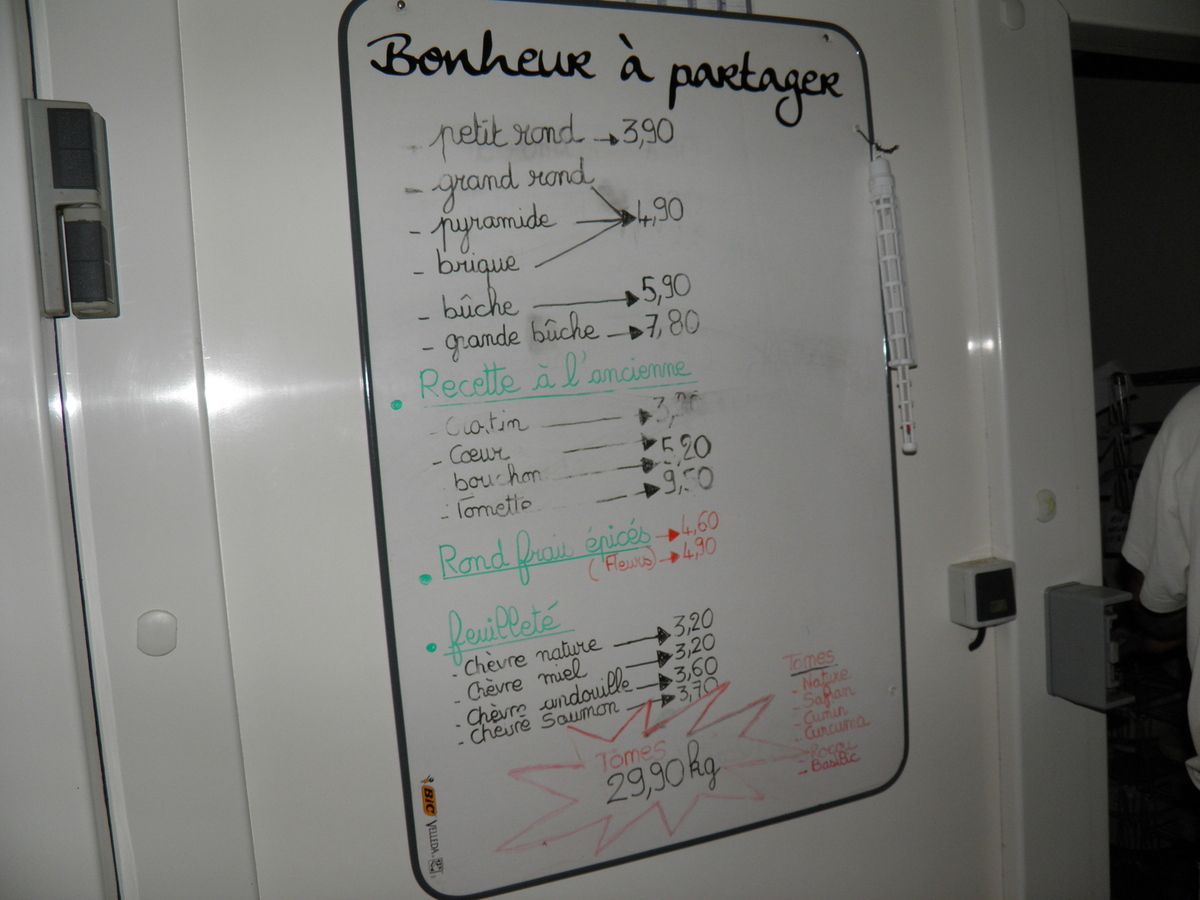 Bonheur à partager
- petit rond → 3,90
- grand rond
- pyramide → 4,90
- brique
- bûche → 5,90
- grande bûche → 7,80
• Recette à l'ancienne
- Crotin →
- Coeur →
bouchon → 5,20
- Tomette → 9,50
• Rond frais épicés → 4,60
(Fleurs) → 4,90
• feuilleté
- Chèvre nature → 3,20
- Chèvre miel → 3,20
- Chèvre andouille → 3,60
- Chèvre Saumon → 3,70
Tomes
29,90 kg
Tomes
- Nature
- Safran
- Cumin
- Curcuma
- BasiBic
BIC VELLEDA